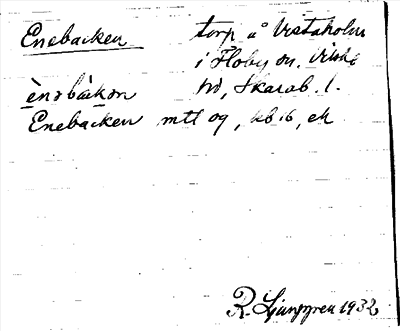 Enebacken torp å Vestaholm
i Floby sn, Vilske
ènəbàkən hd, Skarab. l.
Enebacken mtl og, kb 16, ek
R. Ljunggren 1932